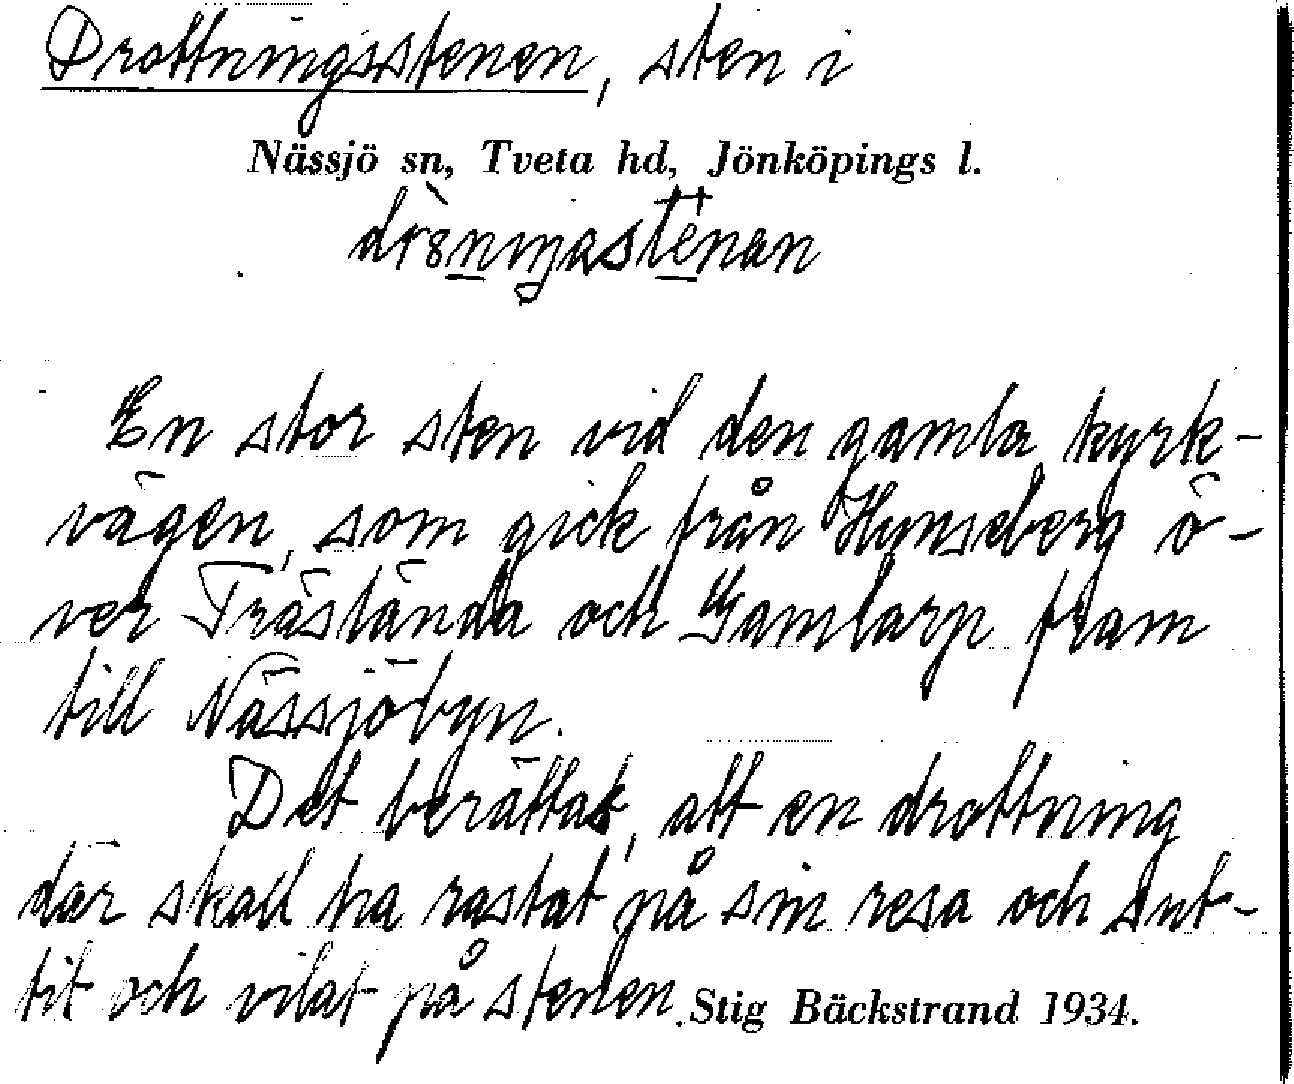 Drottningsstenen, sten i
Nässjö sn, Tveta hd, Jönköpings l.
En stor sten vid den gamla kyrk-
vägen, som gick från Hunseberg ö-
ver Träslända och Gamlarp fram
till Nässjöbyn.
Det berättas, att en drottning
där skall ha rastat på sin resa och sut-
tit och vilat på stenen. Stig Bäckstrand 1934.